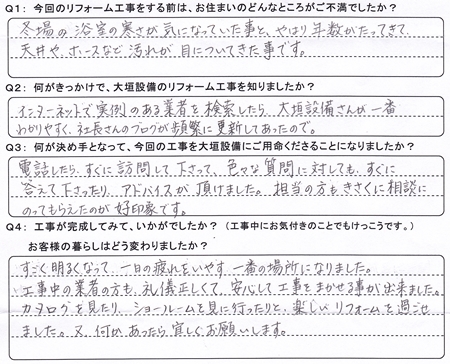 Q1：今回のリフォーム工事をする前は、お住まいのどんなところがご不満でしたか？
冬場の浴室の寒さが気になっていた事と、やはり年数がたってきて、
天井や、ホースなど汚れが目についてきた事です。
Q2：何がきっかけで、大垣設備のリフォーム工事を知りましたか？
インターネットで実例のある業者を検索したら、大垣設備さんが一番
わかりやすく、社長さんのブログが頻繁に更新してあったので。
Q3：何が決め手となって、今回の工事を大垣設備にご用命くださることになりましたか？
電話したら、すぐに訪問して下さって、色々な質問に対しても、すぐに
答えて下さったり、アドバイスが頂けました。担当の方もきさくに相談に
のってもらえたのが好印象です。
Q4：工事が完成してみて、いかがでしたか？（工事中にお気付きのことでもけっこうです。）
お客様の暮らしはどう変わりましたか？
すごく明るくなって、一日の疲れをいやす一番の場所になりました。
工事中の業者の方も、礼儀正しくて、安心して工事をまかせる事が出来ました。
カタログを見たり、ショールームを見に行ったりと、楽しいリフォームを過ごせ
ました。又、何かあったら宜しくお願いします。